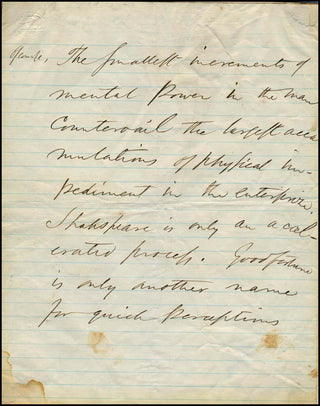 of course, The smallest increments of
mental power in the man
countervail the largest accu
mulations of physical im-
pediment in the enterprize.
Shakspeare is only an accel-
erated process. Good fortune
is only another name
for quick perceptions